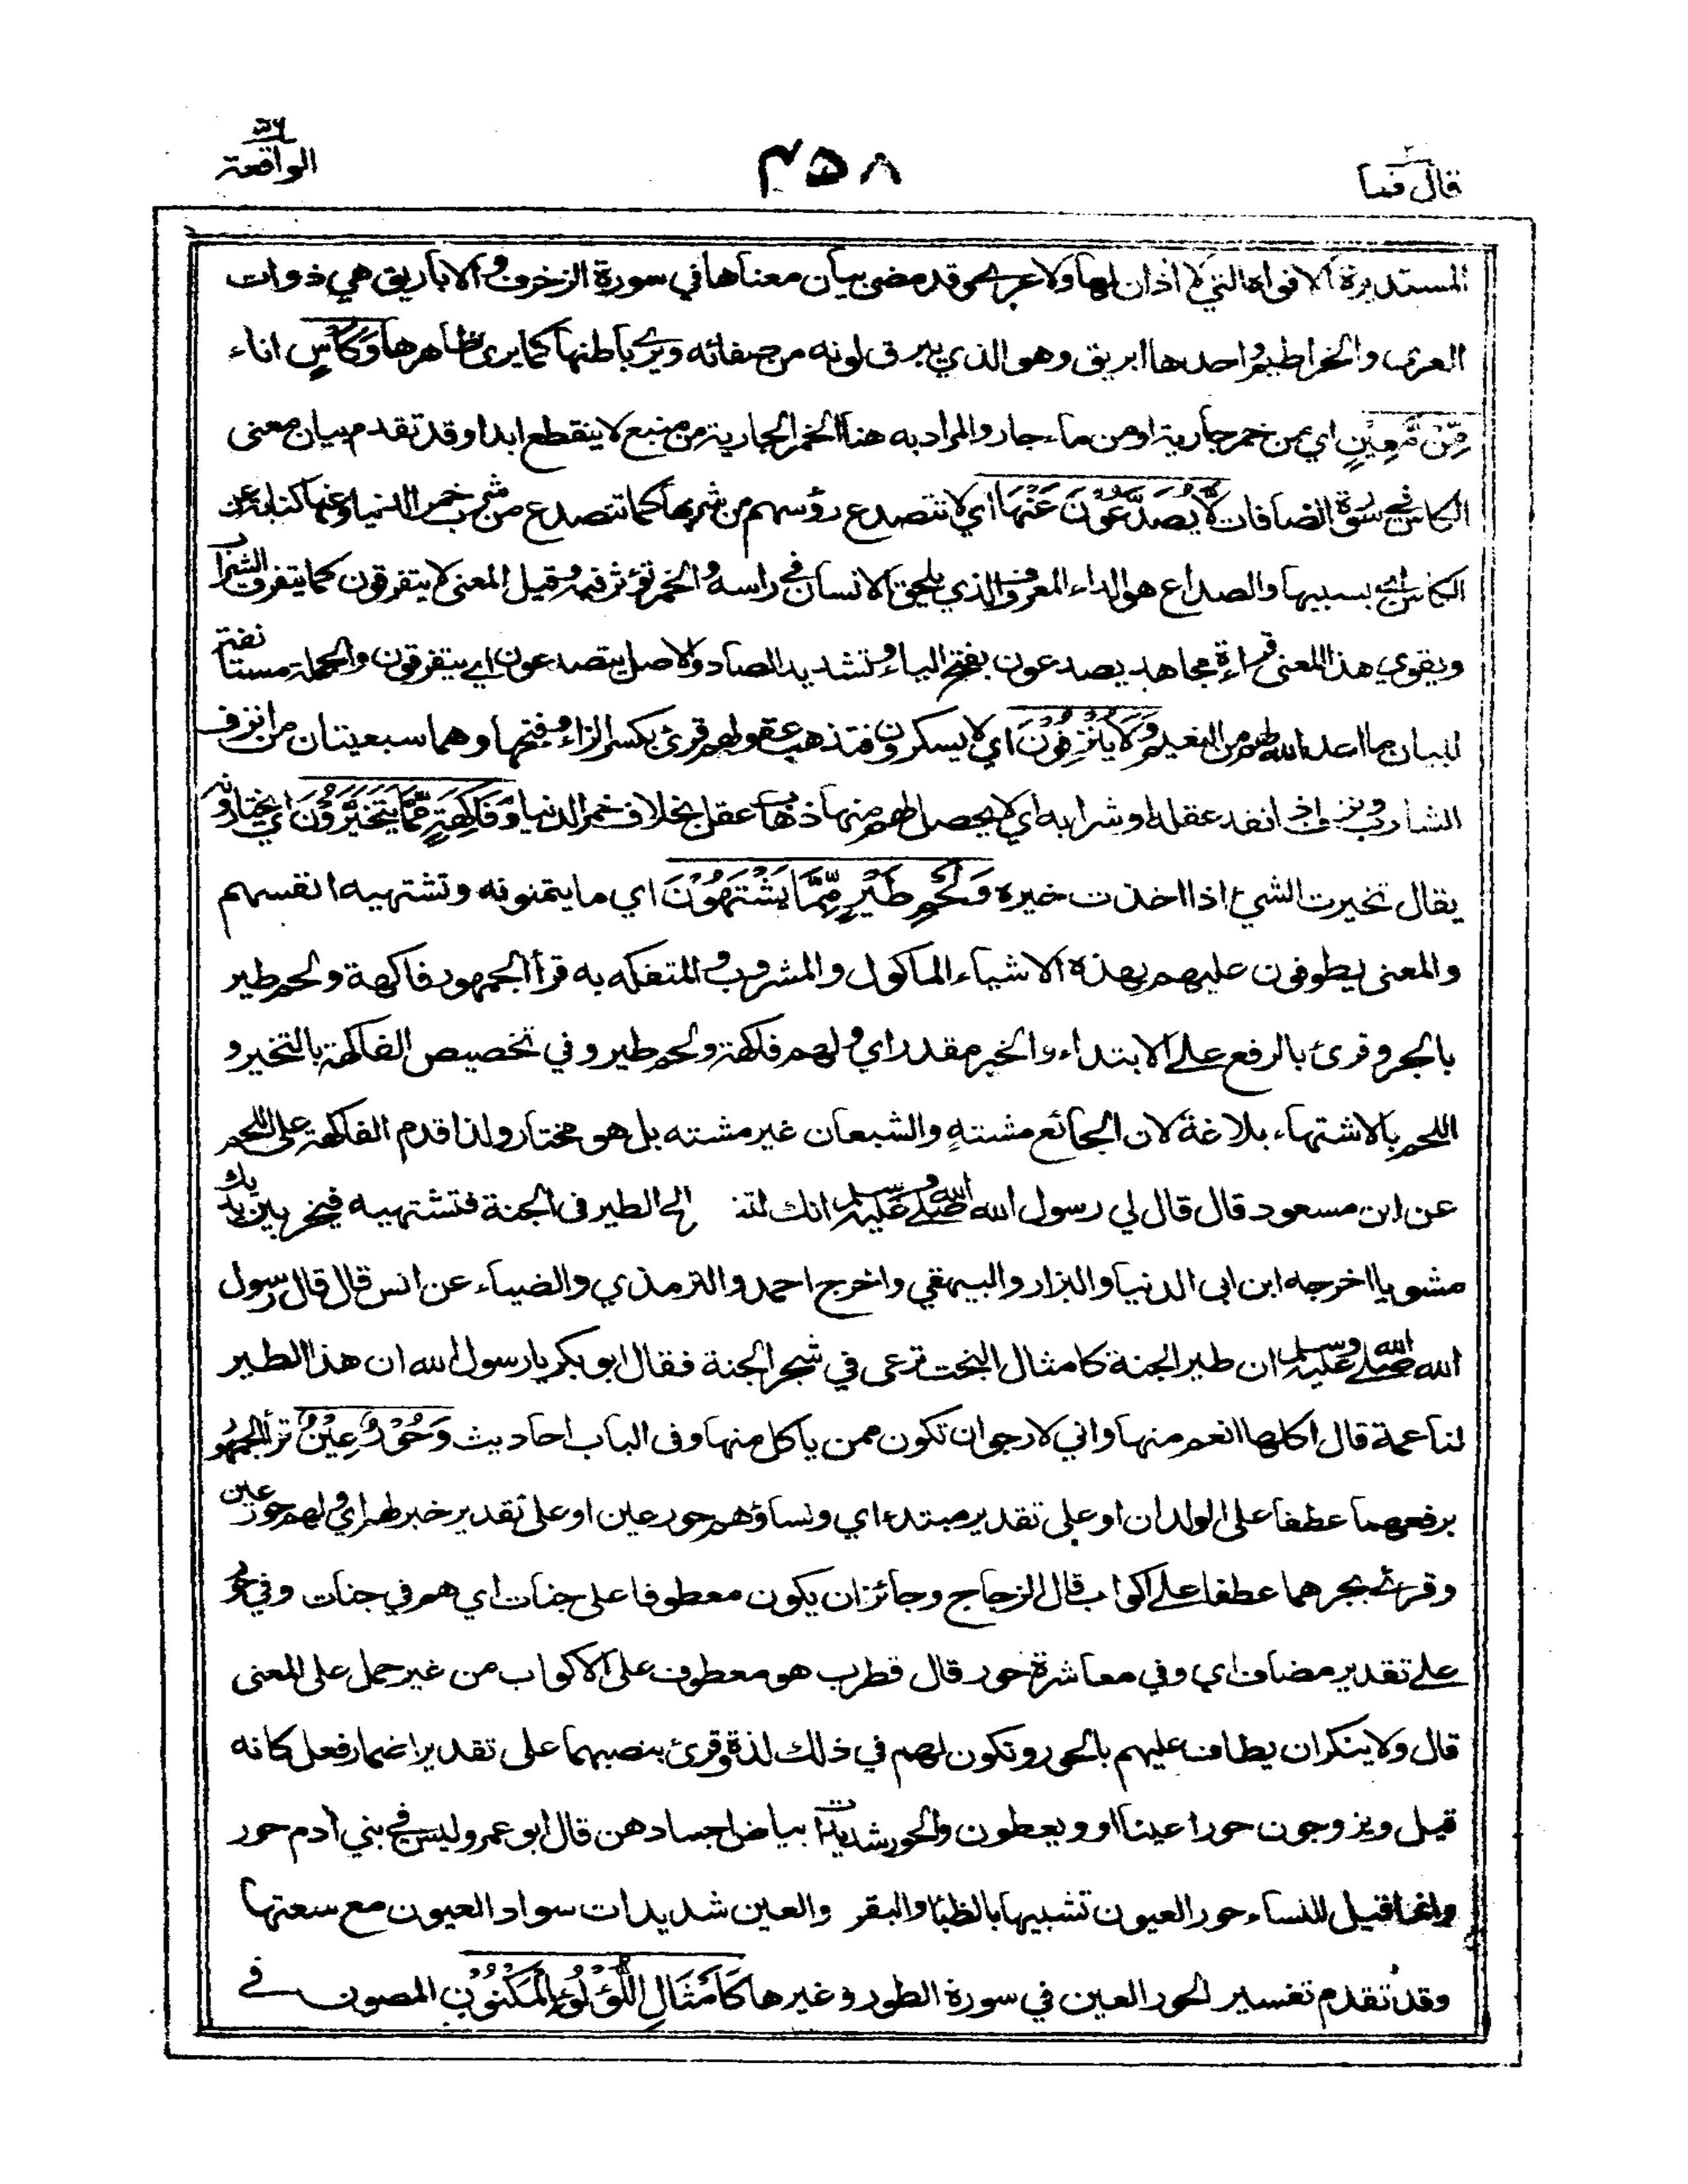 قال فما
٤٥٨
٥٦
الواقعة
المستديرة الافواه التي لا اٰذان لها ولا عرى وقد مضى بيان معناها في سورة الزخرف والاباريق هي ذوات
العرى والخراطيم واحدها ابريق وهو الذي يبرق لونه من صفائه ويرى باطنها كما يرى ظاهرها وَكَأْسٍ اناء
مِّنْ مَّعِيْنٍ اي من خمر جارية او من ماء جار والمراد به هنا الخمر الجارية من منبع لا ينقطع ابدا وقد تقدم بيان معنى
الكاس في سورة الصافات لَا يُصَدَّعُوْنَ عَنْهَا اي لا تتصدع رؤسهم من شربها كما تتصدع من شرب خمر الدنيا وعنها كناية عن
الكاس اي بسببها والصداع هو الداء المعروف الذي يلحق الانسان في راسه والخمر تؤثر فيه وقيل المعنى لا يتفرقون كما يتفرق الشراب
ويقوي هذا المعنى قراءة مجاهد يصدعون بفتح الياء وتشديد الصاد والاصل يتصدعون اي يتفرقون والجملة مستأنفة
لبيان ما اعد الله لهم من النعيم وَلَا يُنْزِفُوْنَ اي لا يسكرون فتذهب عقولهم قرئ بكسر الزاء وفتحها وهما سبعيتان من انزف
الشارب ونزف اذا نفد عقله او شرابه اي لا يحصل لهم منها ذهاب عقل بخلاف خمر الدنيا وَفَاكِهَةٍ مِّمَّا يَتَخَيَّرُوْنَ اي يختارونه
يقال تخيرت الشيء اذا اخذت خيره وَلَحْمِ طَيْرٍ مِّمَّا يَشْتَهُوْنَ اي ما يتمنونه وتشتهيه انفسهم
والمعنى يطوفون عليهم بهذه الاشياء الماكول والمشروب والمتفكه به قرأ الجمهور فاكهة ولحم طير
بالجر وقرئ بالرفع على الابتداء والخبر مقدر اي ولهم فاكهة ولحم طير وفي تخصيص الفاكهة بالتخير و
اللحم بالاشتهاء بلاغة لان الجائع مشتهٍ والشبعان غير مشته بل هو مختار ولذا قدم الفاكهة على اللحم
عن ابن مسعود قال قال لي رسول الله صلى الله عليه وسلم انك لتنـ الى الطير في الجنة فتشتهيه فيخر بين يديك
مشويا اخرجه ابن ابى الدنيا والبزار والبيهقي واخرج احمد والترمذي والضياء عن انس قال قال رسول
الله صلى الله عليه وسلم ان طير الجنة كامثال البخت ترعى في شجر الجنة فقال ابو بكر يا رسول الله ان هذا الطير
لناعمة قال اكلها انعم منها واني لارجو ان تكون ممن ياكل منها وفى الباب احاديث وَحُوْرٌ عِيْنٌ قرأ الجمهور
برفعهما عطفا على الولدان او على تقدير مبتدء اي ونساؤهم حور عين او على تقدير خبر لهم اي ولهم حور عين
وقرئ بجرهما عطفا على اكواب قال الزجاج وجائز ان يكون معطوفا على جنات اي هم في جنات وفي حور
على تقدير مضاف اي وفي معاشرة حور قال قطرب هو معطوف على الاكواب من غير حمل على المعنى
قال ولا ينكر ان يطاف عليهم بالحور وتكون لهم في ذلك لذة وقرئ بنصبهما على تقدير اضمار فعل كانه
قيل ويزوجون حورا عينا او ويعطون والحور شديدات بياض اجسادهن قال ابو عمرو ليس في بني اٰدم حور
وانما قيل للنساء حور العيون تشبيها بالظباء والبقر والعين شديدات سواد العيون مع سعتها
وقد تقدم تفسير الحور العين في سورة الطور وغيرها كَاَمْثَالِ اللُّؤْلُؤِ الْمَكْنُوْنِ المصون في